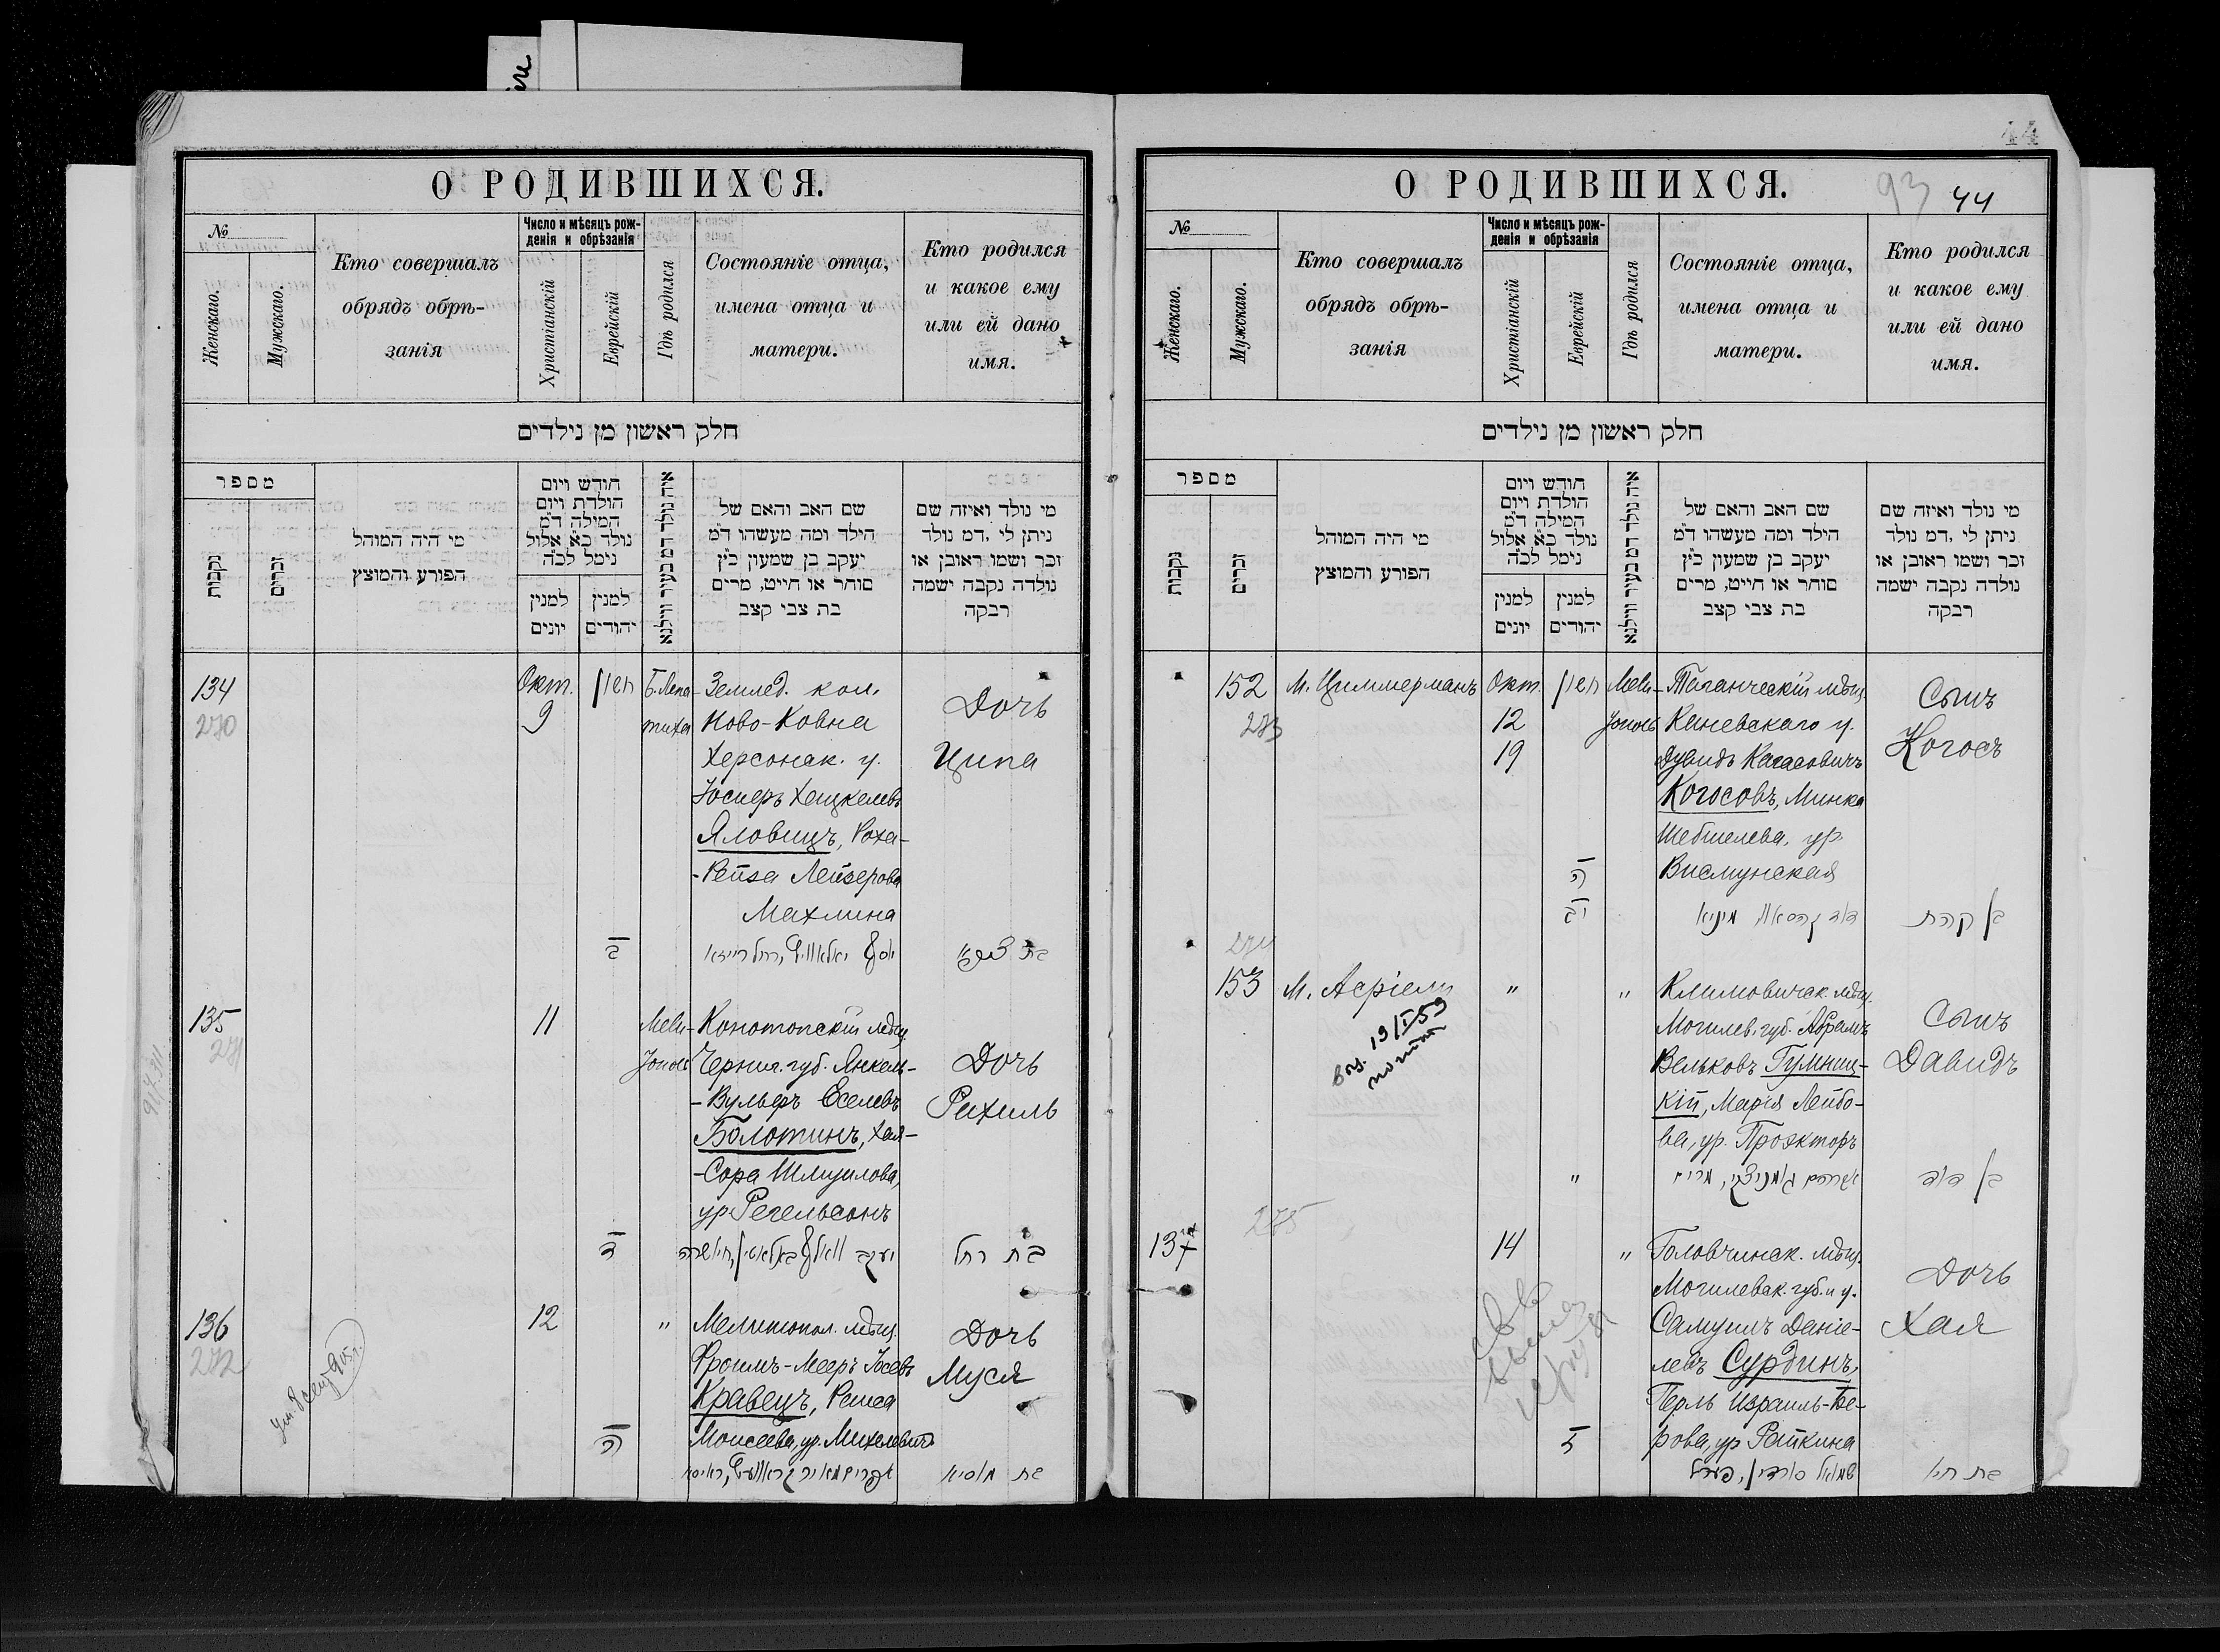 О РОДИВШИХСЯ.
№
Женскаго.
Мужскаго.
Кто совершалъ
обрядъ обрѣ-
занія
Число и мѣсяцъ рож-
денія и обрѣзанія
Христіанскій
Еврейскій
Гдѣ родился
Состояніе отца,
имена отца и
матери.
Кто родился
и какое ему
или ей дано
имя.
חלק ראשון מן נילדים
מספר
נקבות
זכרים
מי היה המוהל
הפורע והמוצץ
חודש ויום
הולדת ויום
המילה ד"מ
נולד כ"א אלול
נימל לכ"ה
למנין
יונים
למנין
יהודים
איה נולד דמ בעיר ווילנא
שם האב והאם של
הילד ומה מעשהו ד"מ
יעקב בן שמעון כ"ץ
סוחר או חייט, מרים
בת צבי קצב
מי נולד ואיזה שם
ניתן לי, דמ נולד
זכר ושמו ראובן או
נולדה נקבה ישמה
רבקה
134
270
Окт.
9
חשון
Б. Лепа-
тиха
Землед. кол.
Ново-Ковна
Херсонск. у.
Хацкелевъ
Яловицъ, Роха-
-Рейза Лейзерова
Махлина
Дочь
Ципа
ב
135
271
11
Мели-
тополь
Конотопскій мѣщ.
Черниг. губ. Янкель-
-Вульфъ Еселевъ
Болотинъ, Хая-
-Сора Шмуилова,
ур. Регельсонъ
Дочь
Рахиль
ד
בת רחל
136
272
12
"
Мелитопол. мѣщ.
Фроимъ-Мееръ Іосевъ
Кравецъ, Рейса
Моисеева, ур. Михелевичъ
Дочь
Муся
ה
בת מוסיא
О РОДИВШИХСЯ.
93
44
№
Женскаго.
Мужскаго.
Кто совершалъ
обрядъ обрѣ-
занія
Число и мѣсяцъ рож-
денія и обрѣзанія
Христіанскій
Еврейскій
Гдѣ родился
Состояніе отца,
имена отца и
матери.
Кто родился
и какое ему
или ей дано
имя.
חלק ראשון מן נילדים
מספר
נקבות
זכרים
מי היה המוהל
הפורע והמוצץ
חודש ויום
הולדת ויום
המילה ד"מ
נולד כ"א אלול
נימל לכ"ה
למנין
יונים
למנין
יהודים
איה נולד דמ בעיר ווילנא
שם האב והאם של
הילד ומה מעשהו ד"מ
יעקב בן שמעון כ"ץ
סוחר או חייט, מרים
בת צבי קצב
מי נולד ואיזה שם
ניתן לי, דמ נולד
זכר ושמו ראובן או
נולדה נקבה ישמה
רבקה
152
273
М. Циммерманъ
Окт.
12
19
חשון
Мели-
тополь
Таганческій мѣщ.
Каневскаго у.
Дувидъ Кагосовичъ
Когосовъ, Минка
Шебшелева, ур.
Висмунская
Сынъ
Когосъ
ה
יב
בן קהת
274
153
М. Асріели
"
"
Климовичск. мѣщ.
Могилев. губ. Абрамъ
Вельковъ Гумниц-
кій, Марія Лейбо-
ва, ур. Проэкторъ
Сынъ
Давидъ
19/I 59
"
בן דוד
137
275
14
"
Головчинск. мѣщ.
Могилевск. губ. и у.
Самуилъ Даніе-
левъ Сурдинъ,
Перль Израиль-Бе-
рова, ур. Райкина
Дочь
Хая
ז
שמואל סורדין, פערל
בת חיה